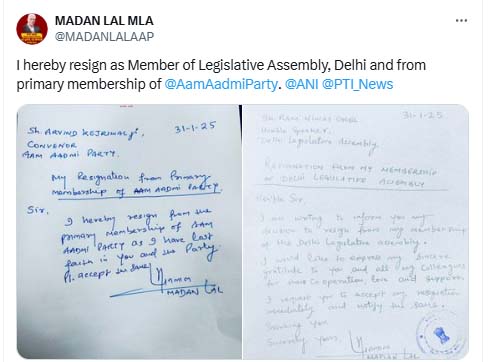 MADAN LAL MLA
@MADANLALAAP
I hereby resign as Member of Legislative Assembly, Delhi and from
primary membership of @AamAadmiParty. @ANI @PTI_News
31-1-25
Sh. ARVIND KEJRIWAL Ji,
CONVENOR
AAM AADMI PARTY.
My Resignation from Primary
membership of AAM AADMI PARTY.
Sir,
I hereby resign from the
primary membership of AAM
AADMI PARTY as I have lost
faith in you and the Party
Pl. accept the same
MADAN LAL
31-1-25
Sh. RAM NIWAS GOEL
Hon'ble Speaker,
Delhi Legislative Assembly.
RESIGNATION FROM MY MEMBERSHIP
OF DELHI LEGISLATIVE ASSEMBLY
Hon'ble Sir,
I am writing to inform you my
decision to resign from my membership
of the Delhi Legislative Assembly.
I would like to express my sincere
gratitude to you and all my Colleagues
for their Cooperation, love and support.
I request you to accept my resignation
immediately and notify the same.
Thanking You
Sincerely Yours,
MADAN LAL